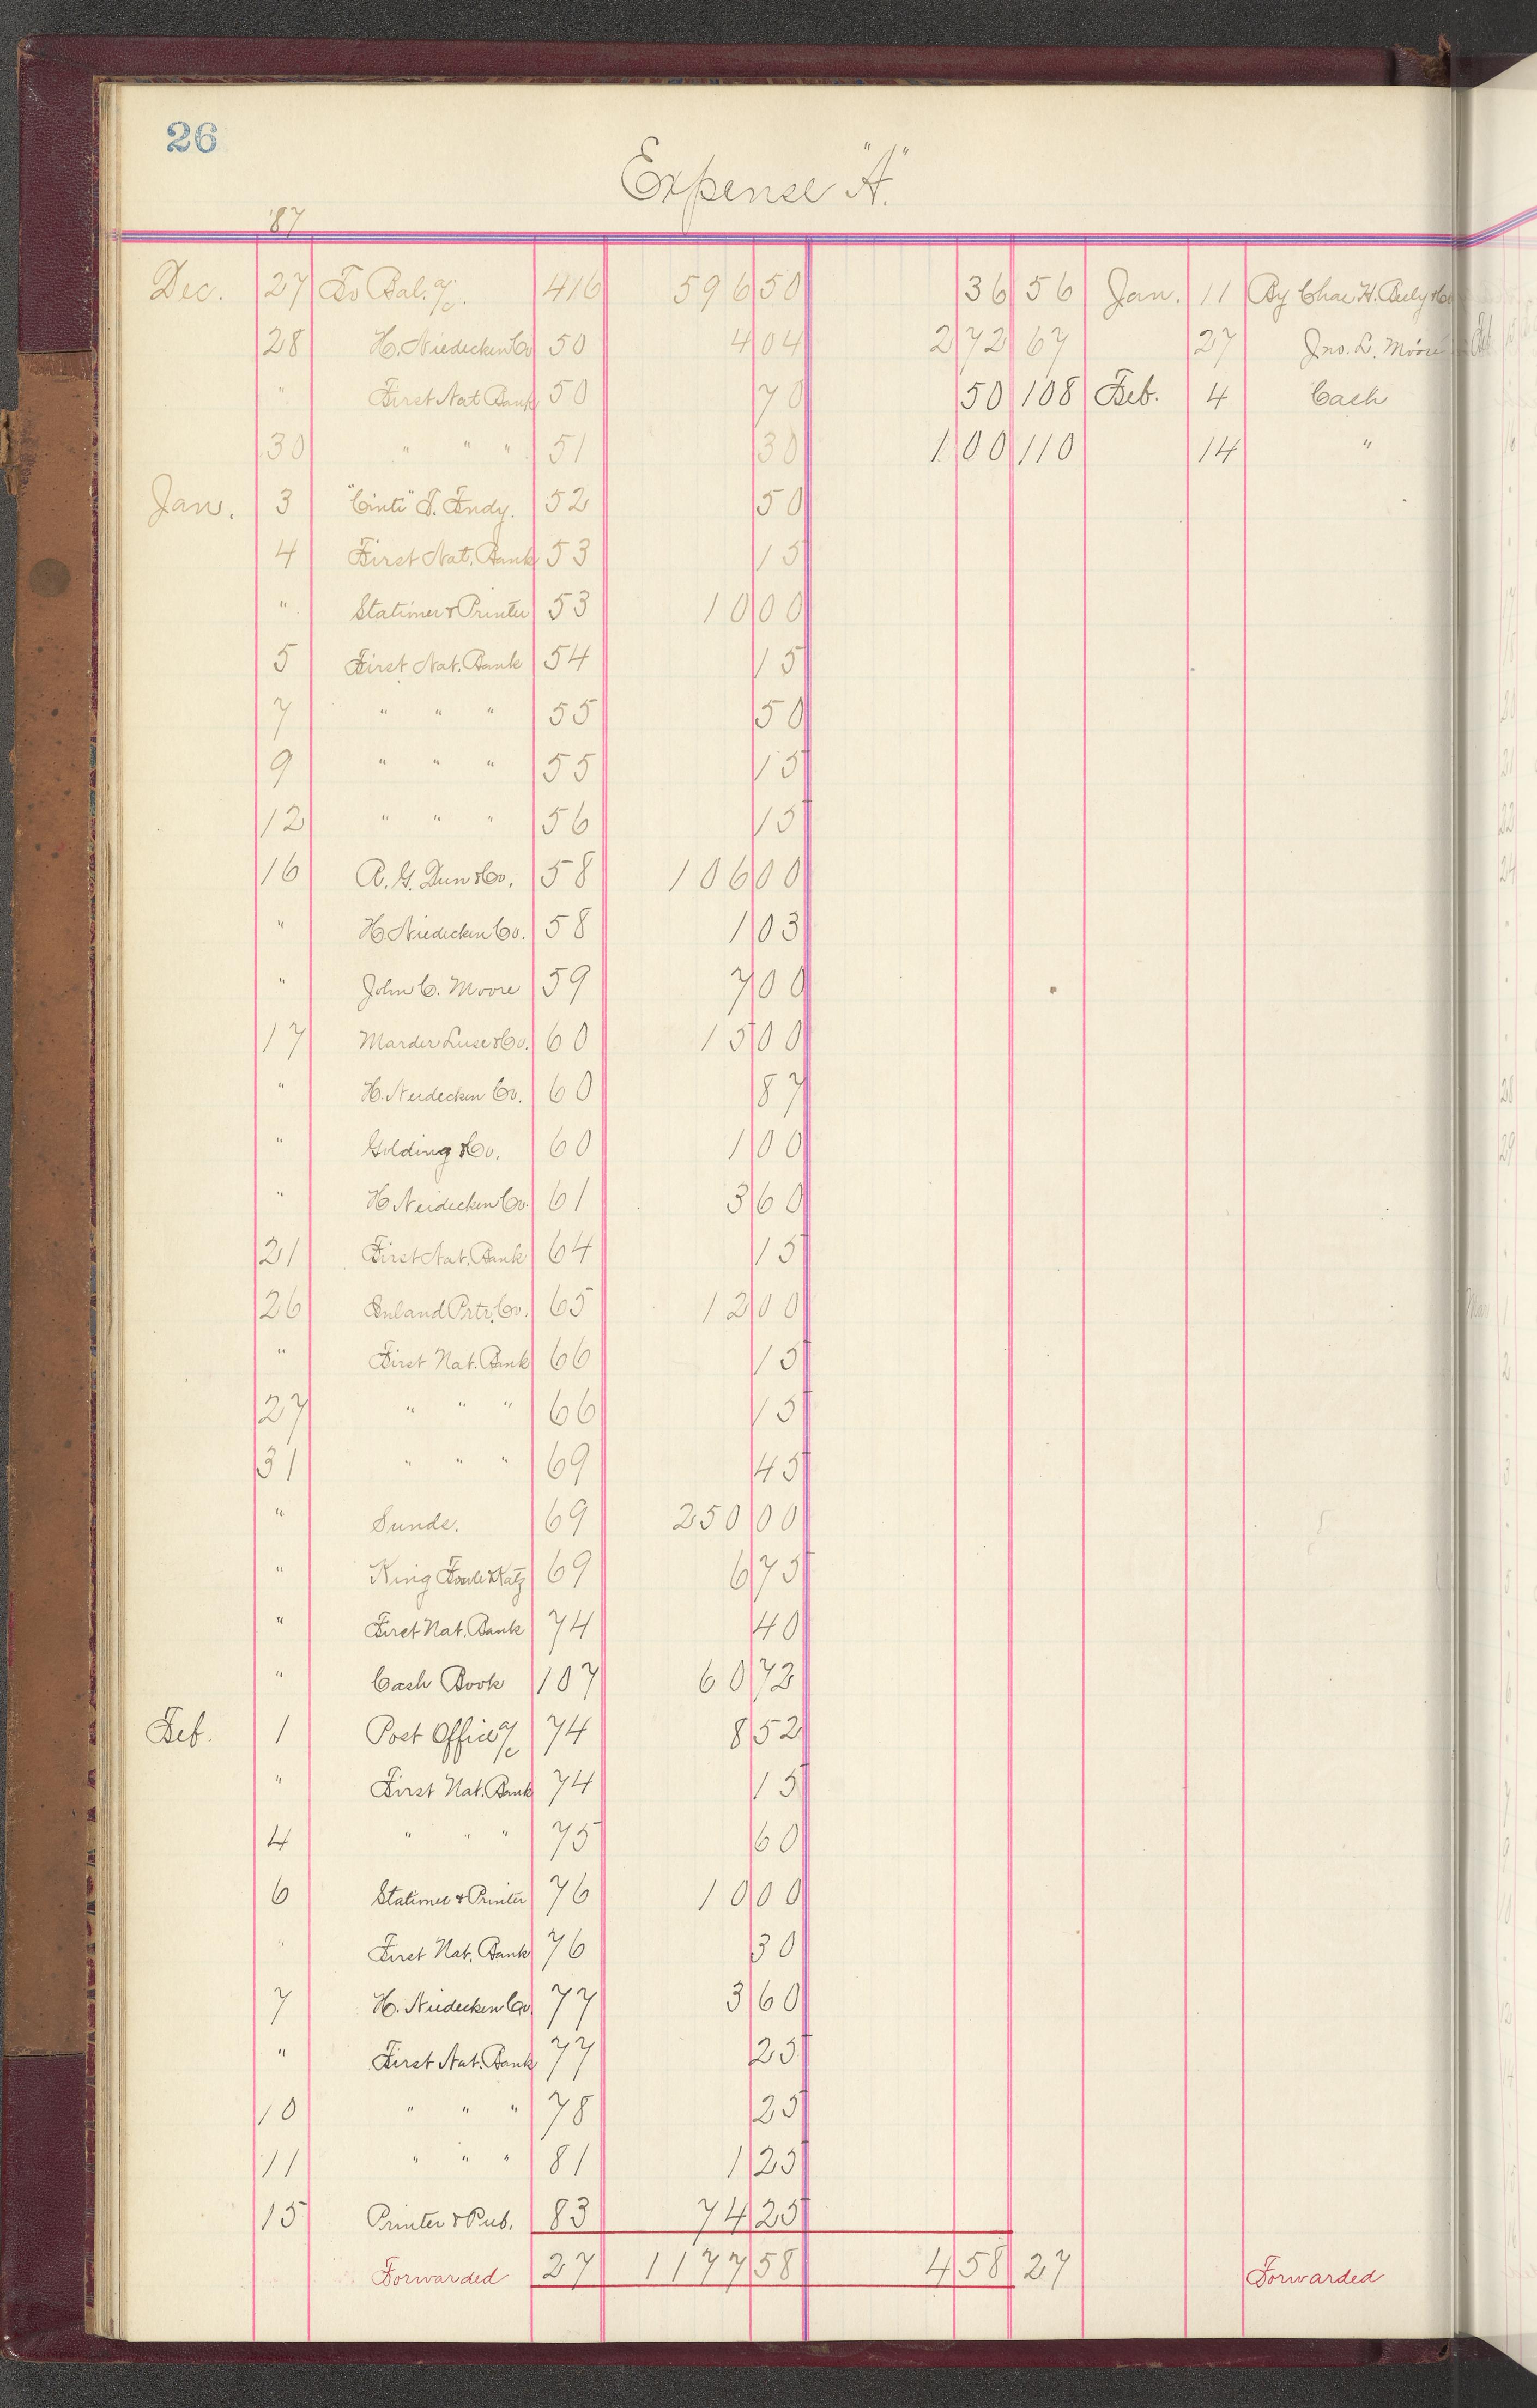 26
Expense "A."
'87
Dec. 27 To Bal. a/c. 416 596 50 36 56 Jan. 11 By Chas H.
28 H. Niedecken Co 50 4 04 2 72 67 27 Jno. L. Moore
" First Nat Bank 50 70 50 108 Feb. 4 Cash
30 " " " 51 30 1 00 110 14 "
Jan. 3 "Cinti" T. Fndy. 52 50
4 First Nat. Bank 53 15
" Stationer & Printer 53 10 00
5 First Nat. Bank 54 15
7 " " " 55 50
9 " " " 55 15
12 " " " 56 15
16 R. G. Dun & Co. 58 106 00
" H Niedecken Co. 58 1 03
" John C. Moore 59 7 00
17 Marder Luse & Co. 60 15 00
" H. Neidecken Co. 60 87
" Golding & Co. 60 1 00
" H Neidecken Co. 61 3 60
21 First Nat. Bank 64 15
26 Inland Prtr. Co. 65 12 00
" First Nat. Bank 66 15
27 " " " 66 15
31 " " " 69 45
" Sunds. 69 250 00
" King Fowle & Katz 69 6 75
" First Nat. Bank 74 40
" Cash Book 107 60 72
Feb. 1 Post Office a/c 74 8 52
" First Nat. Bank 74 15
4 " " " 75 60
6 Stationer & Printer 76 10 00
" First Nat. Bank 76 30
7 H. Niedecken Co 77 3 60
" First Nat. Bank 77 25
10 " " " 78 25
11 " " " 81 1 25
15 Printer & Pub. 83 74 25
Forwarded 27 1177 58 4 58 27 Forwarded